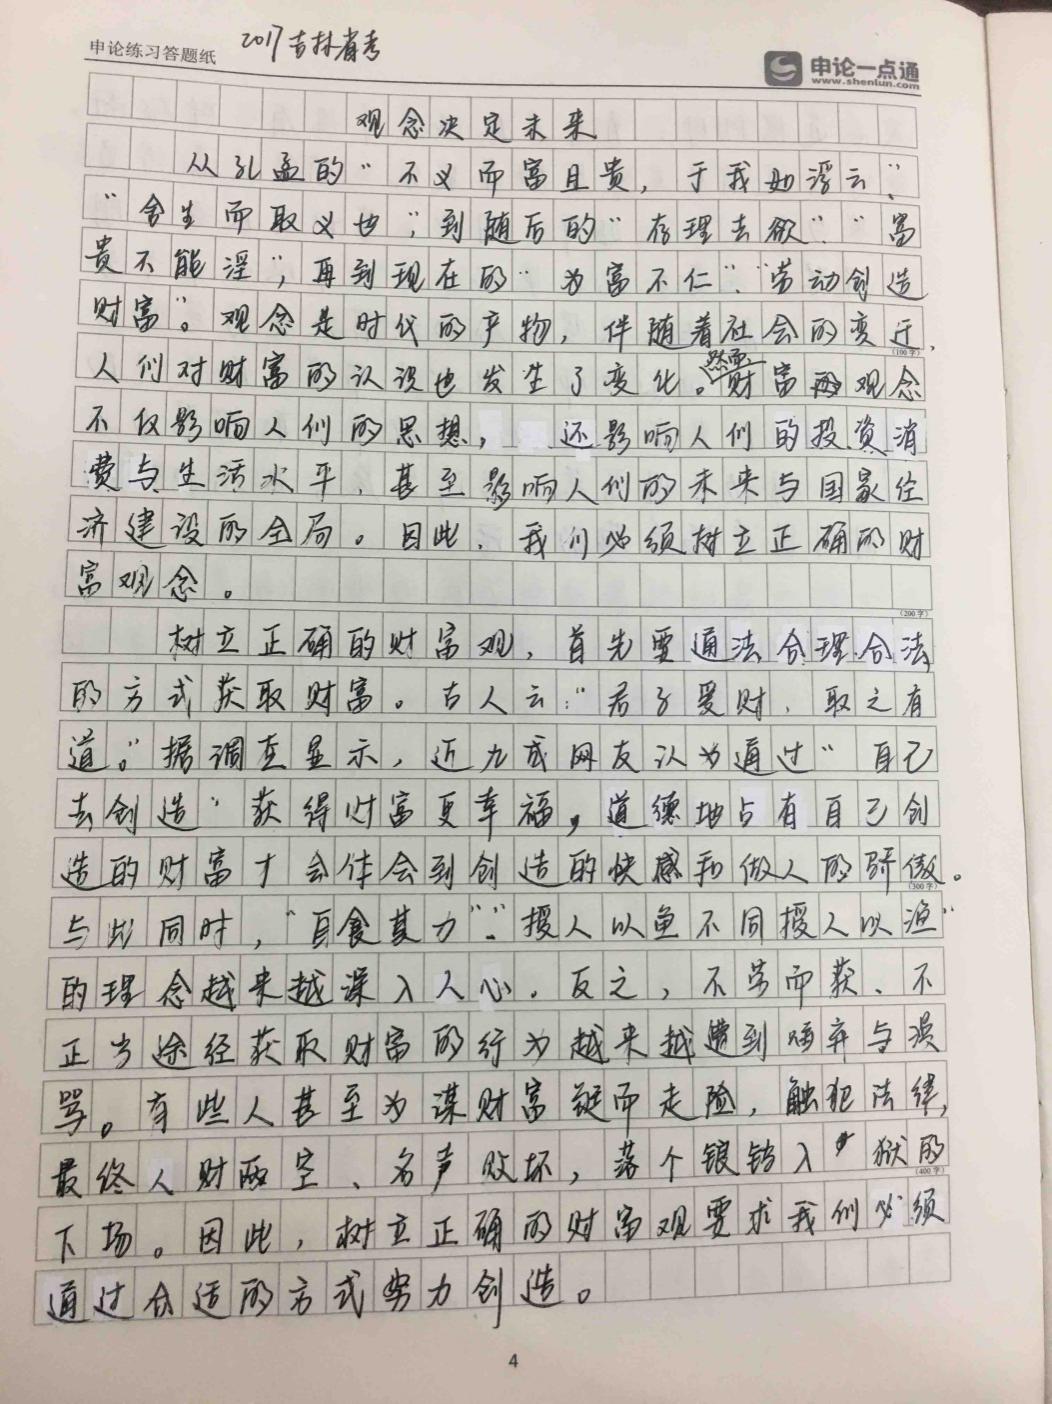 2017吉林省考
申论练习答题纸
申论一点通
www.shenlun.com
观念决定未来
从孔孟的“不义而富且贵，于我如浮云”、
“舍生而取义也”，到随后的“存理去欲”“富
贵不能淫”，再到现在的“为富不仁”“劳动创造
财富”。观念是时代的产物，伴随着社会的变迁，
(100字)
人们对财富的认识也发生了变化。然而财富观念
不仅影响人们的思想，还影响人们的投资消
费与生活水平，甚至影响人们的未来与国家经
济建设的全局。因此，我们必须树立正确的财
富观念。
(200字)
树立正确的财富观，首先要通法合理合法
的方式获取财富。古人云：“君子爱财，取之有
道。”据调查显示，近九成网友认为通过“自己
去创造”获得财富更幸福，道德地占有自己创
造的财富才会体会到创造的快感和做人的骄傲。
(300字)
与此同时，“自食其力”“授人以鱼不同授人以渔”
的理念越来越深入人心。反之，不劳而获、不
正当途经获取财富的行为越来越遭到唾弃与谩
骂。有些人甚至为谋财富铤而走险，触犯法律，
最终人财两空、名声败坏，落个锒铛入狱的
(400字)
下场。因此，树立正确的财富观要求我们必须
通过合适的方式努力创造。
4